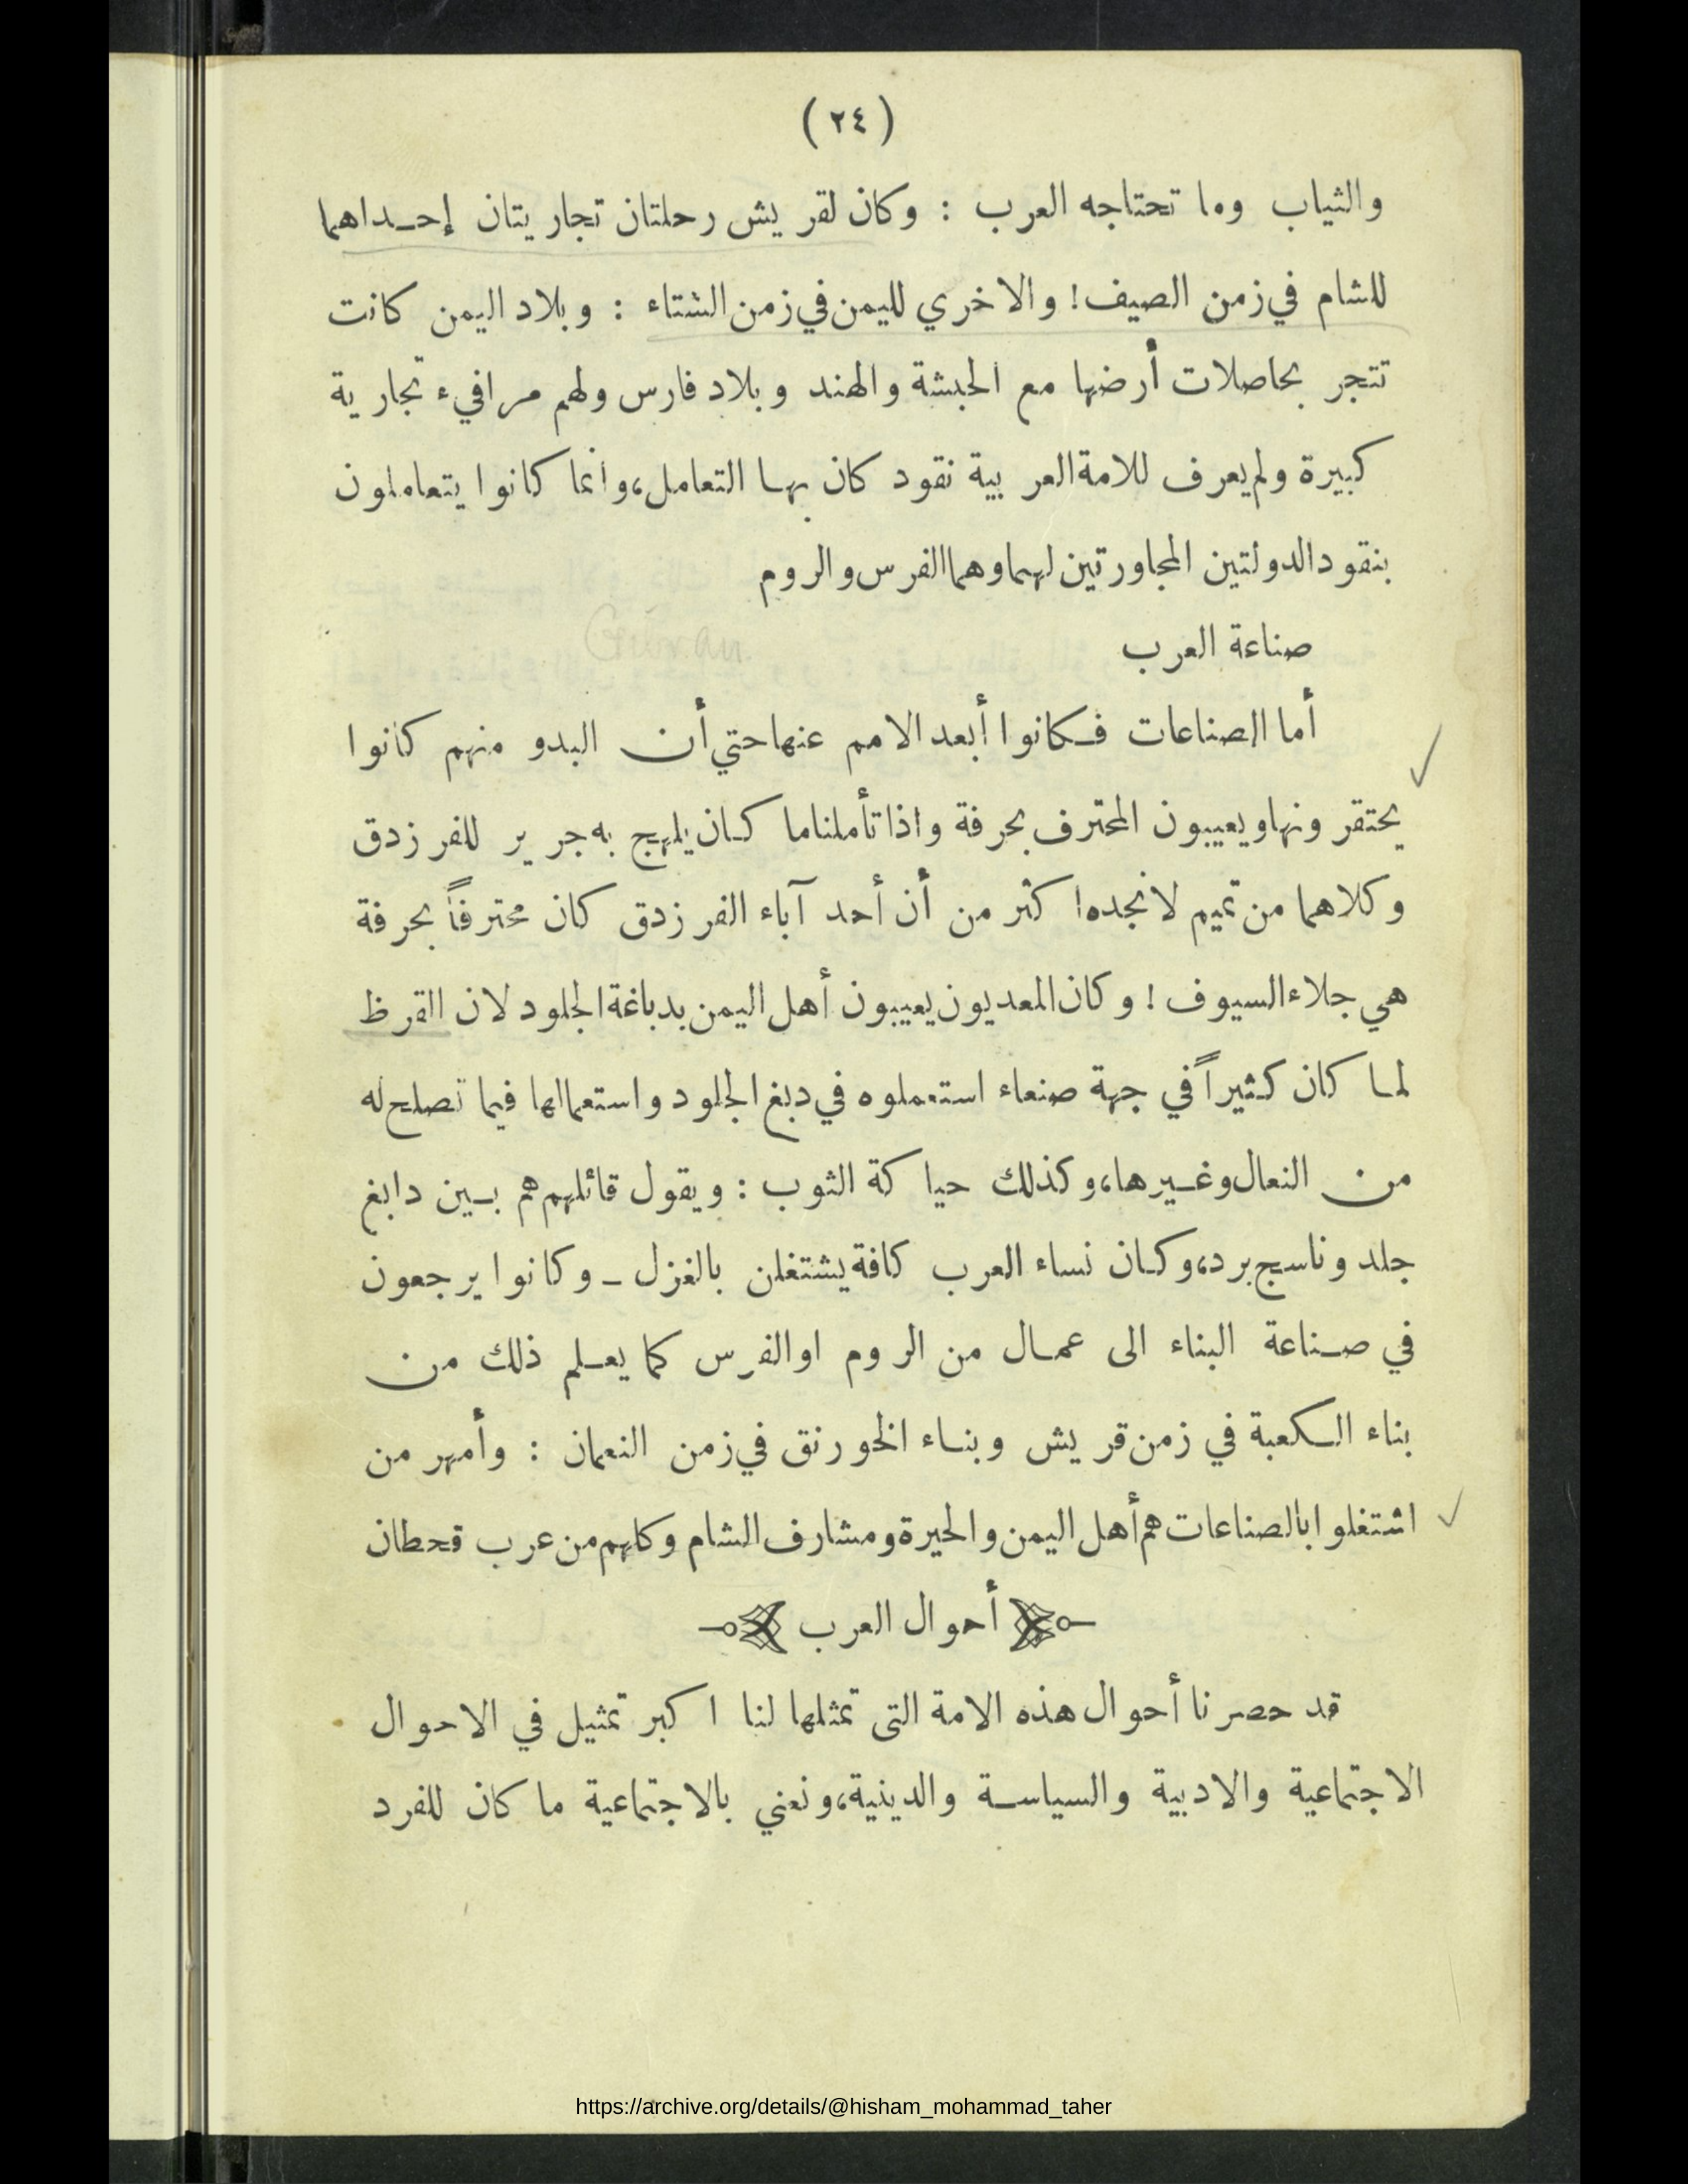 (٢٤)
والثياب وما تحتاجه العرب : وكان لقريش رحلتان تجاريتان إحداهما
للشام في زمن الصيف! والاخري لليمن في زمن الشتاء : وبلاد اليمن كانت
تتجر بحاصلات أرضها مع الحبشة والهند وبلاد فارس ولهم مرافيء تجارية
كبيرة ولم يعرف للامة العربية نقود كان بها التعامل، وانما كانوا يتعاملون
بنقود الدولتين المجاورتين لهما وهما الفرس والروم
Gürran
صناعة العرب
أما الصناعات فكانوا أبعد الامم عنها حتي أن البدو منهم كانوا
يحتقرونها ويعيبون المحترف بحرفة واذا تأملنا ما كان يلهج به جرير للفرزدق
وكلاهما من تميم لا نجده اكثر من أن أحد آباء الفرزدق كان محترفاً بحرفة
هي جلاء السيوف ! وكان المعديون يعيبون أهل اليمن بدباغة الجلود لان القرظ
لما كان كثيراً في جهة صنعاء استعملوه في دبغ الجلود واستعمالها فيما تصلح له
من النعال وغيرها، وكذلك حياكة الثوب : ويقول قائلهم هم بين دابغ
جلد وناسج برد، وكان نساء العرب كافة يشتغلن بالغزل ـ وكانوا يرجعون
في صناعة البناء الى عمال من الروم او الفرس كما يعلم ذلك من
بناء الكعبة في زمن قريش وبناء الخورنق في زمن النعمان : وأمهر من
اشتغلوا بالصناعات هم أهل اليمن والحيرة ومشارف الشام وكلهم من عرب قحطان
أحوال العرب
قد حصرنا أحوال هذه الامة التى تمثلها لنا اكبر تمثيل في الاحوال
الاجتماعية والادبية والسياسة والدينية، ونعني بالاجتماعية ما كان للفرد
https://archive.org/details/@hisham_mohammad_taher